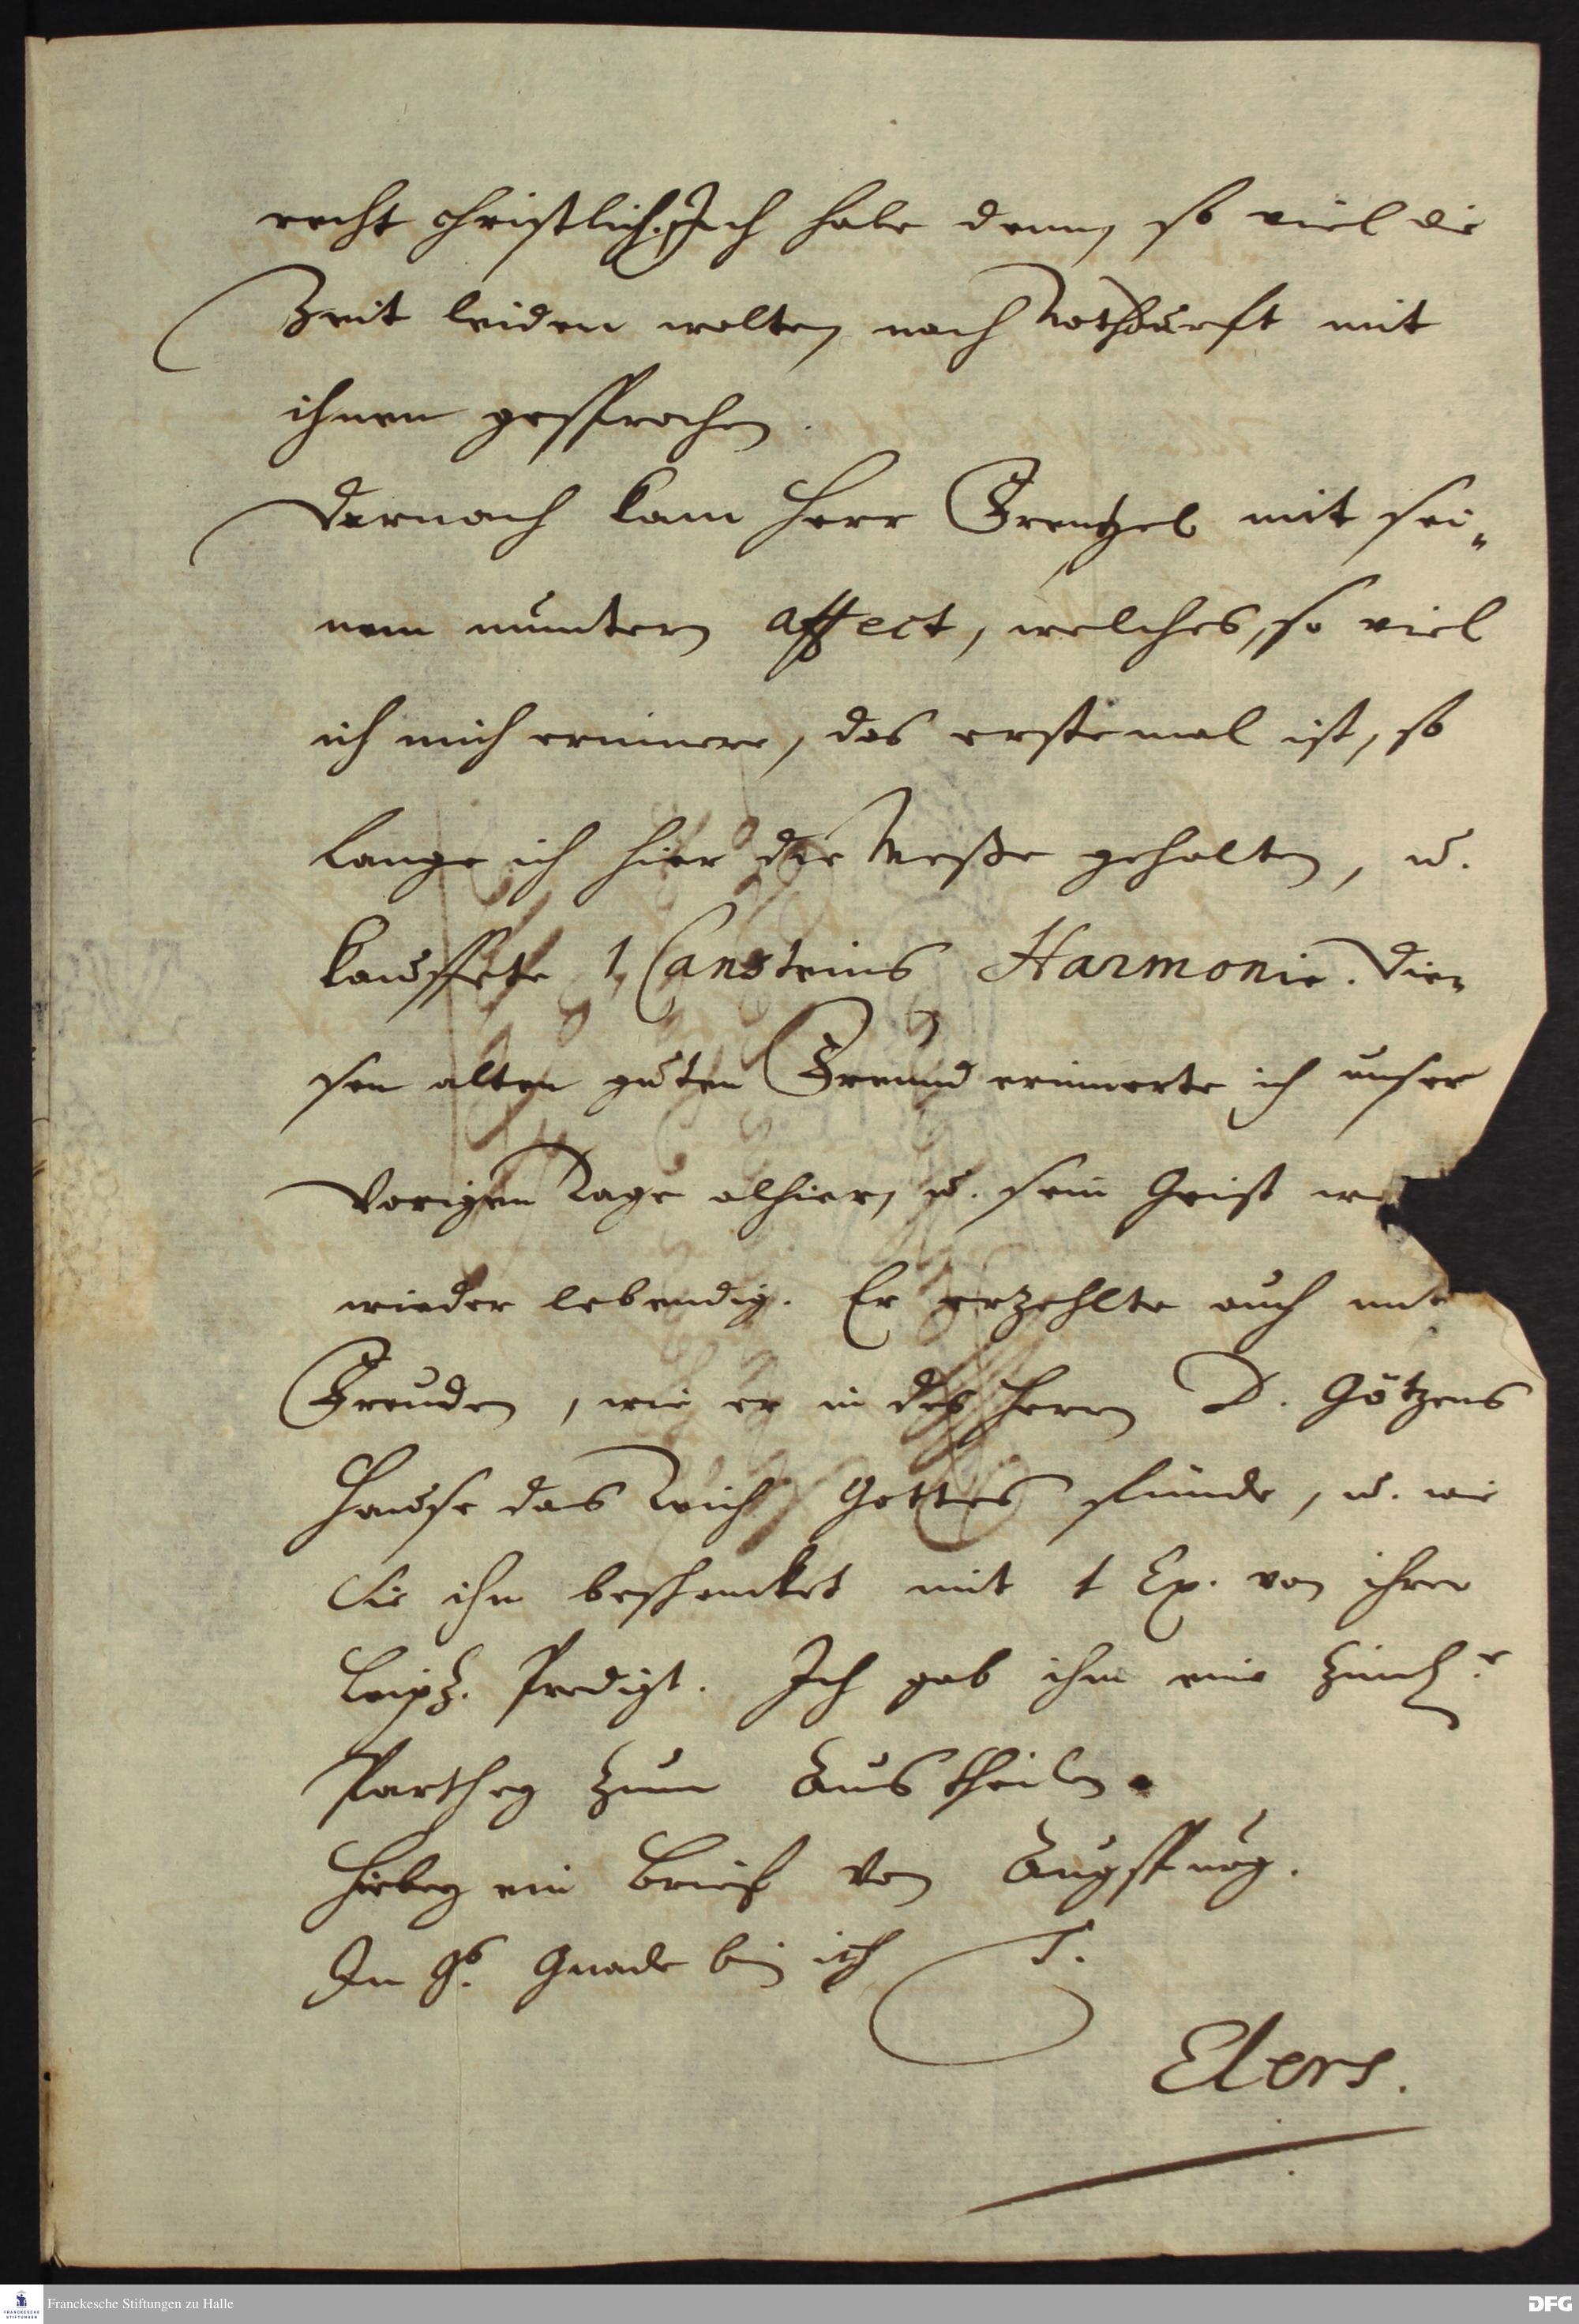 recht christlich. Ich habe denn, so viel die
Zeit leiden wolten, nach Nothdurfft mit
ihnen gesprochen.
Darnach kam Herr Frentzel mit sei=
nem muntern affect, welches, so viel
ich mich erinnere, das erstemal ist, so
lange ich hier die Meße gehalten, u.
kauffete 1 Cansteins Harmonie. Die=
sen alten guten Freund erinnerte ich unser
vorigen Tage alhier, u. sein Geist
wieder lebendig. Er erzehlte auch mit
Freuden, wie er in des Herrn D. Götzens
Hause das Reich Gottes fünde, u. wie
Sie ihn beschencket mit 1 Ex. von ihrer
Leipz. Predigt. Ich gab ihm eine
Parthey zum Austheilen.
Hiebey ein Brief von Augspurg.
In Gs. Gnade bin ich T.
Elers.
Franckesche Stiftungen zu Halle
DFG